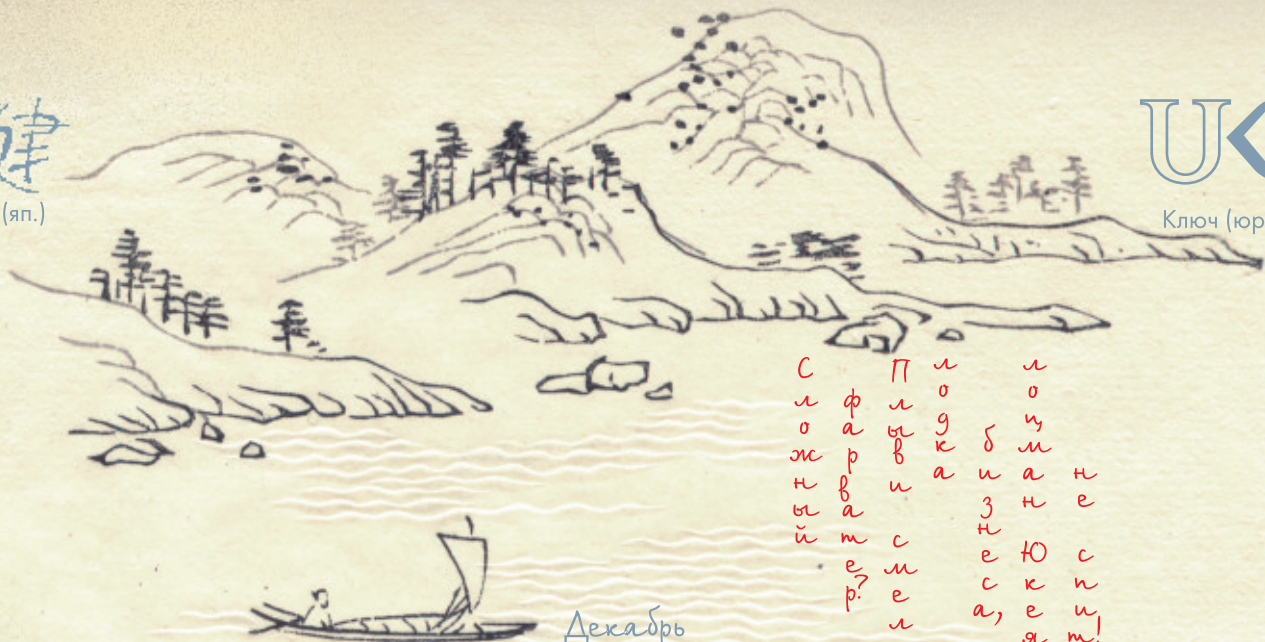 (яп.)
U
Ключ (юр
Сложный
фарватер?
Плыви смел
лодка
бизнеса,
лоцман Юкея
не спит!
Декабрь